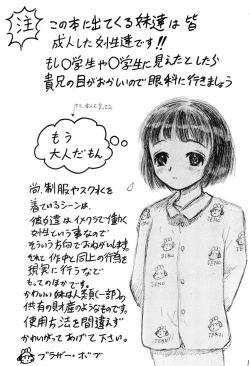 注
この本に出てくる妹達は皆
成人した女性達です!!
もし〇学生や〇学生に見えたとしたら
貴兄の目がおかしいので眼科に行きましょう
もう
大人だもん
尚、制服やスク水を
着ているシーンは、
彼女達はイメクラで働く
女性という事なので
そういう方向でおねがいします。
それと作中と同上の行為を
現実に行うなど
もってのほかです。
かわいい妹は人類(一部)の
供有の財産のようなものです。
使用方法を間違えず
かわいがってあげて下さい。
ブラザー・ボブ